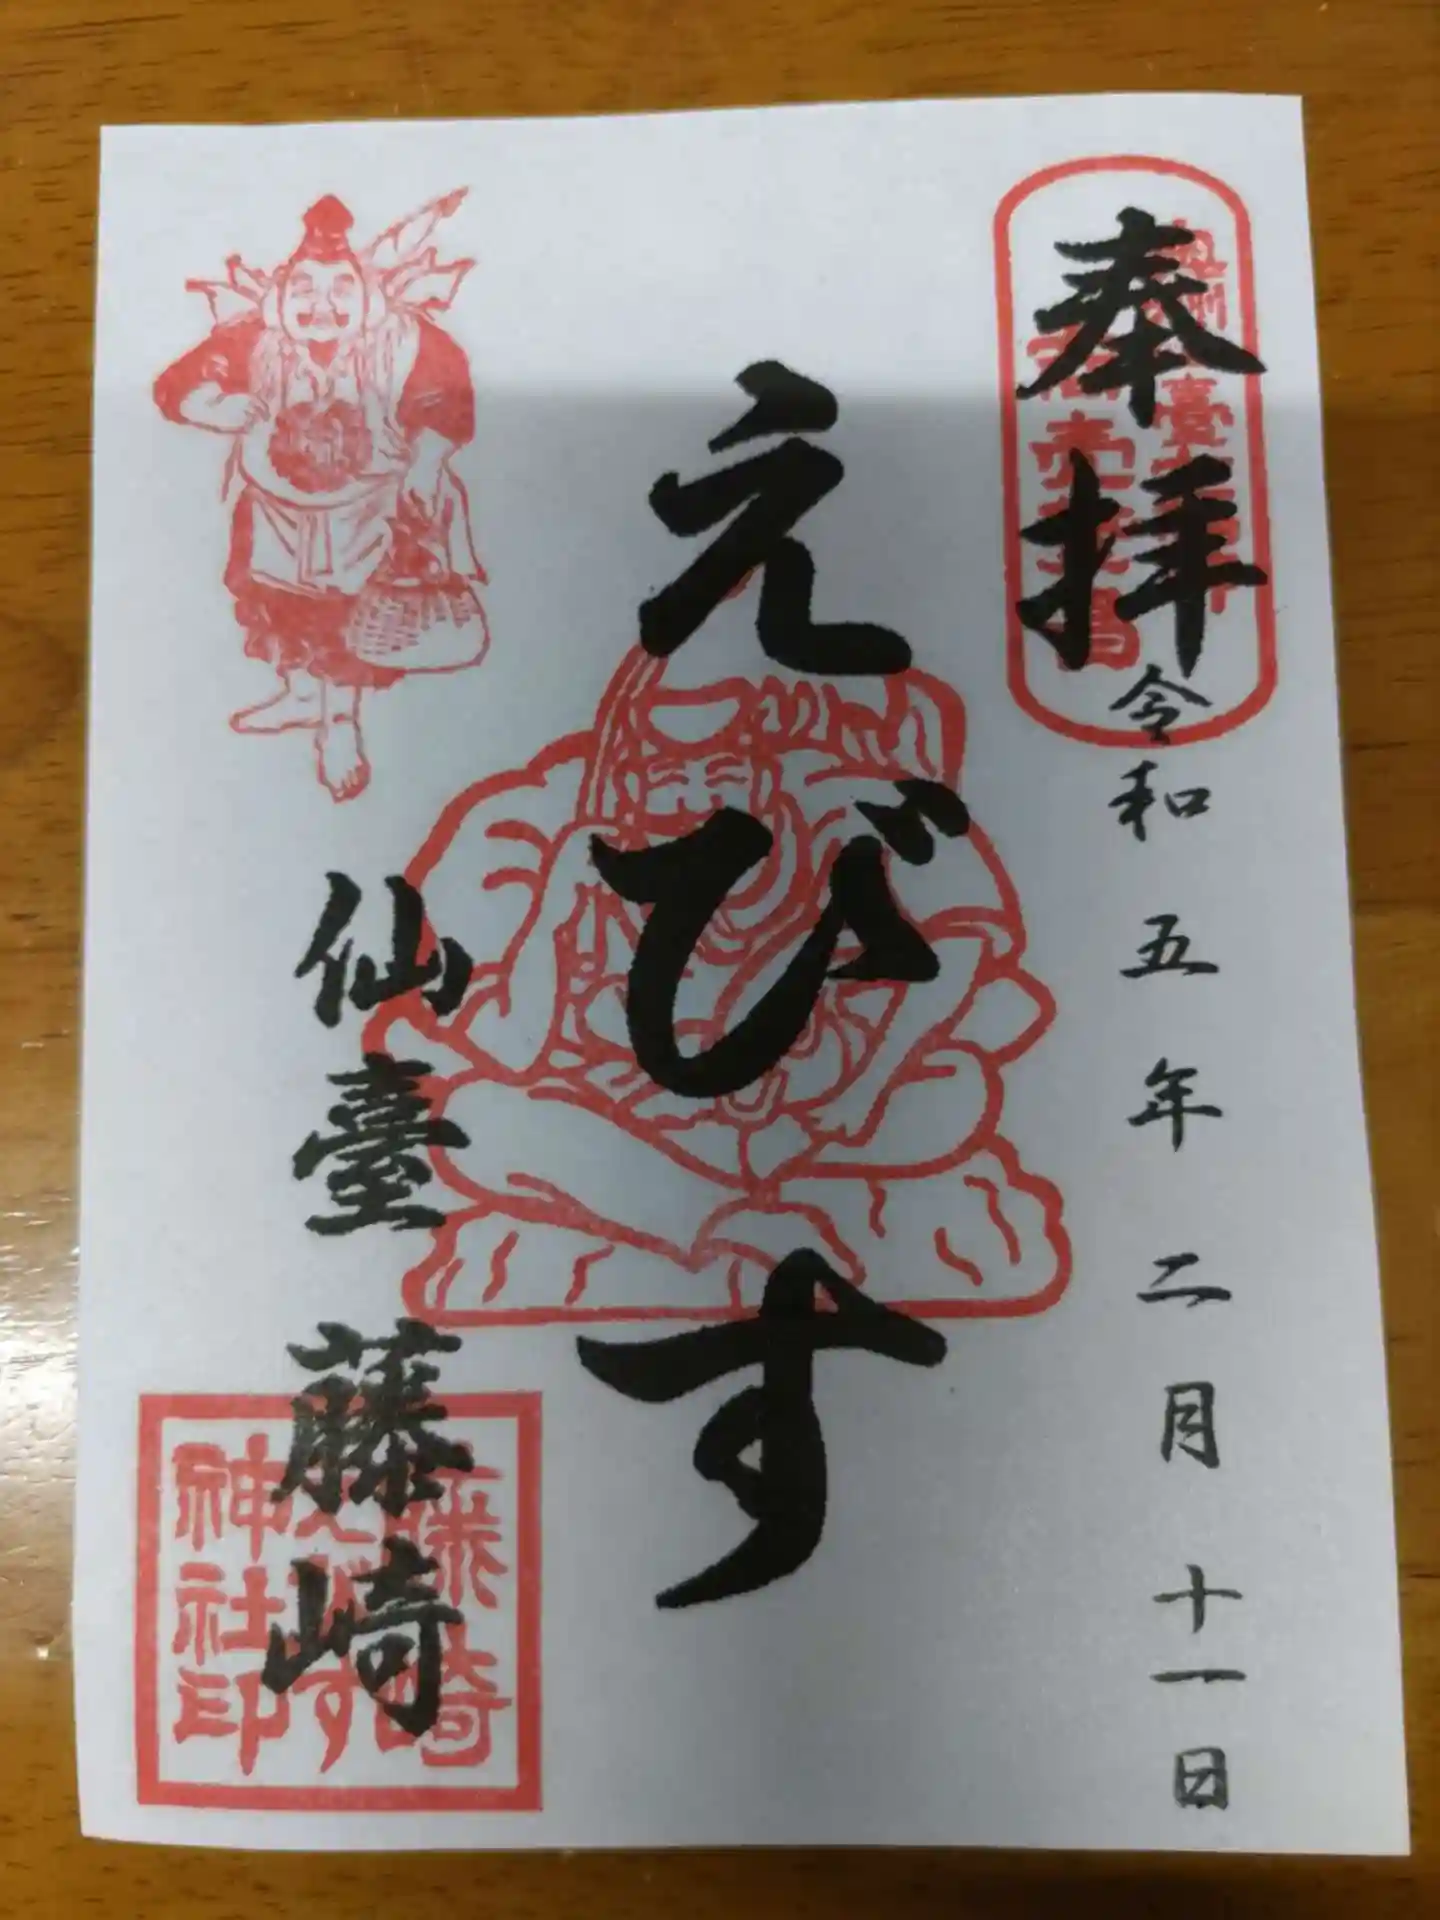 奉拝
令和五年二月十一日
えびす
仙臺 藤崎
藤崎
えびす
神社印